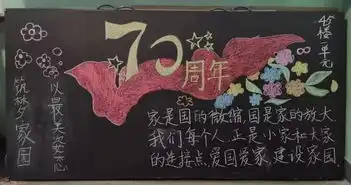 70
周年
楼一单元
筑梦家园
以最大
家是国的微缩,国是家的放大
我们每个人,正是小家和大家
的连接点,爱国爱家,建设家园